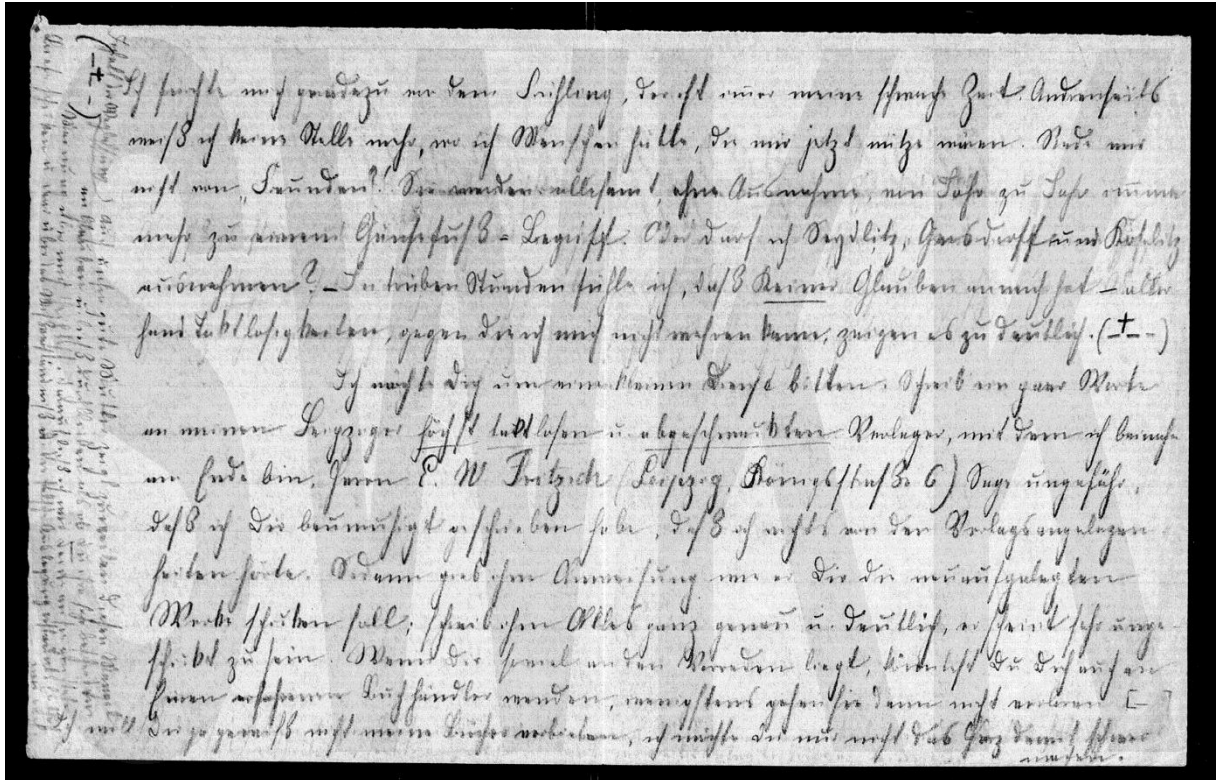 Ich fürchte mich geradezu vor dem Frühling, der ist immer meine schwache Zeit. Andrenseits
weiß ich keine Stelle mehr, wo ich Menschen hätte, die mir jetzt nütze wären. Rede mir
nicht von „Freunden“! Sie werden allesamt, ohne Ausnahme, von Jahr zu Jahr immer
mehr zu einem Gänsefuß-Begriff. Oder darf ich Seydlitz, Gersdorff und Köselitz
ausnehmen? – In trüben Stunden fühle ich, daß Keiner Glauben an mich hat – aller
hand Taktlosigkeiten, gegen die ich mich nicht wehren kann, zeigen es zu deutlich. (–±–)
Ich möchte Dich um einen kleinen Dienst bitten. Schreib ein paar Worte
an meinen Leipziger höchst taktlosen u. abgeschmackten Verleger, mit dem ich beinahe
am Ende bin, Herrn E. W Fritzsch (Leipzig, Königsstraße 6) Sage ungefähr,
daß ich Dir beunruhigt geschrieben habe, daß ich nichts von den Verlagsangelegen
heiten hörte. Sodann gieb ihm Anweisung wie er Dir die neuaufgelegten
Werke schicken soll; schreib ihm Alles ganz genau u. deutlich, er scheint sehr unge-
schickt zu sein. Wenn Dir soviel an den Vorreden liegt, könntest Du Dich auch an
Einen erfahrenen Buchhändler wenden, wenigstens gehen sie dann nicht verloren [–]
Ich will Dir ja gewiß nicht meine Bücher verbieten, ich möchte Dir nur nicht das Herz damit schwer
machen.
(–±–)